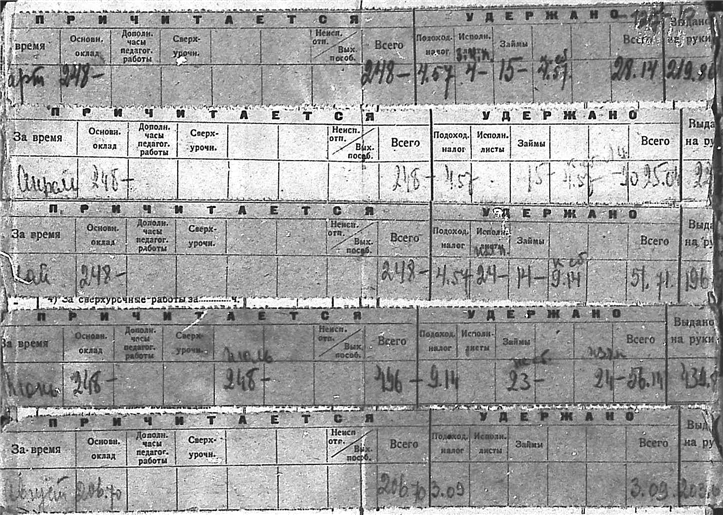 ПРИЧИТАЕТСЯ УДЕРЖАНО
время Основн. оклад Дополн. часы педагог. работы Сверх- урочн. Неисп. отп. Вых. пособ. Всего Подоход. налог Исполн. Займы Всего Выдано на руки
арт 248- 248- 4.57 4- 15- 4.57 28.14 219.86
ПРИЧИТАЕТСЯ УДЕРЖАНО
За время Основн. оклад Дополн. часы педагог. работы Сверх- урочн. Неисп. отп. Вых. пособ. Всего Подоход. налог Исполн. листы Займы Всего Выда на ру
Апрель 248- 248- 4.57 15- 4.57
ПРИЧИТАЕТСЯ УДЕРЖАНО
За время Основн. оклад Дополн. часы педагог. работы Сверх- урочн. Неисп. отп. Вых. пособ. Всего Подоход. налог Исполн. листы Займы Всего Выда на ру
ай 248- 248- 4.57 24- 14- 9.14 51.71 196
4) За сверхурочные работы за ч.
ПРИЧИТАЕТСЯ УДЕРЖАНО
За время Основн. оклад Дополн. часы педагог. работы Сверх- урочн. июль Неисп. отп. Вых. пособ. Всего Подоход. налог Исполн. листы Займы Всего Выдано на руки
Июнь 248- 248- 496- 9.14 23- 24- 56.14
ПРИЧИТАЕТСЯ УДЕРЖАНО
За время Основн. оклад Дополн. часы педагог. работы Сверх- урочн. Неисп отп. Вых. пособ. Всего Подоход. налог Исполн. листы Займы Всего Выд на рук
Август 206.70 206.70 3.09 3.09 203.